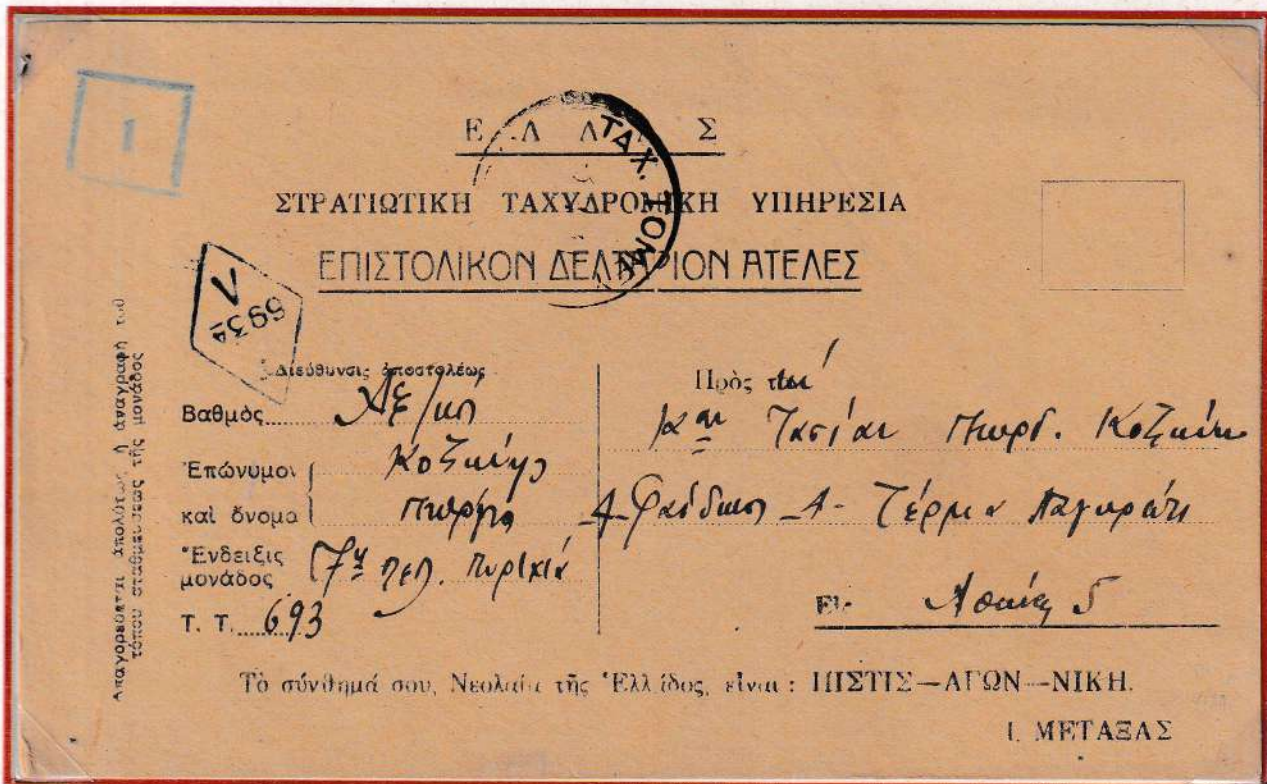 1
Ε Λ Λ Α Σ
ΤΑΧ. ΤΟΜ
ΣΤΡΑΤΙΩΤΙΚΗ ΤΑΧΥΔΡΟΜΙΚΗ ΥΠΗΡΕΣΙΑ
ΕΠΙΣΤΟΛΙΚΟΝ ΔΕΛΤΑΡΙΟΝ ΑΤΕΛΕΣ
693Δ
Ἀπαγορεύεται ἀπολύτως ἡ ἀναγραφὴ τοῦ
τόπου σταθμεύσεως τῆς μονάδος
Διεύθυνσις ἀποστολέως
Βαθμὸς
Ἐπώνυμον Κοζάκης
καὶ ὄνομα
Ἔνδειξις
μονάδος 7η
Τ. Τ. 693
Πρὸς τὴν
Τασίαν Γεωρ. Κοζάκη
Τέρμα Παγκράτι
Εἰς Ἀθήνας 5
Τὸ σύνθημά σου, Νεολαία τῆς Ἑλλάδος, εἶναι : ΠΙΣΤΙΣ—ΑΓΩΝ—ΝΙΚΗ.
Ι. ΜΕΤΑΞΑΣ